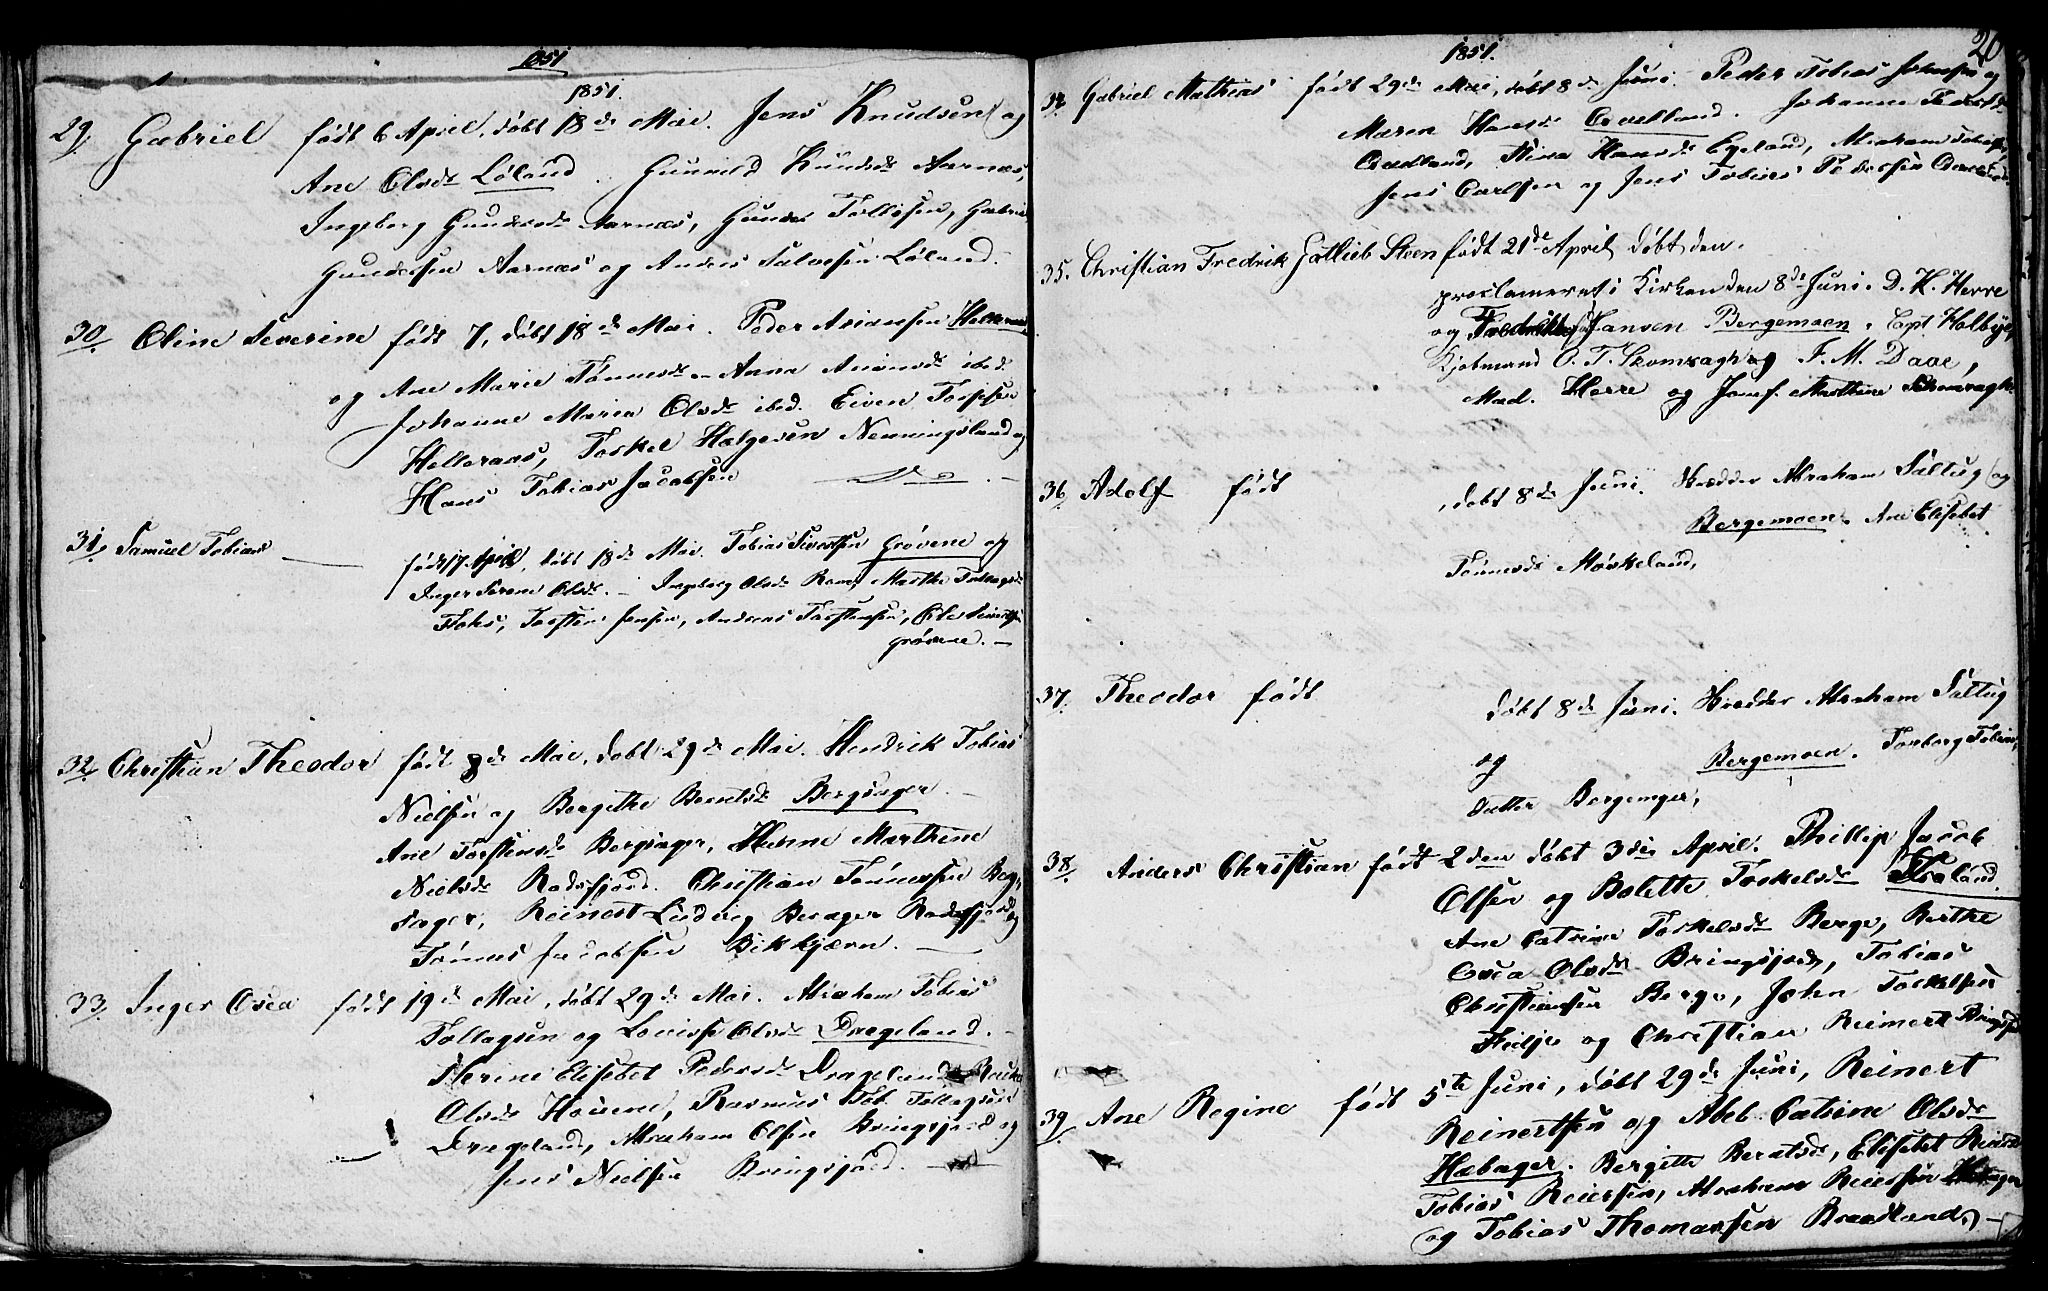 1851
1851.
29. Gabriel født 6 April, døbt 18de Mai. Jens Knudsen og
Ane Olsdr Løland. Gunvild Knudsdr Aarnæs,
Ingeborg Gundersdr Aarnæs, Gunder Tollefsen, Gabriel
Gundersen Aarnæs og Anders Salvesen Løland.
30. Oline Severine født 7, døbt 18de Mai. Peder Asiansen Helleraas
og Ane Marie Tønnesdr – Anna ibed.
Johanne Maria Olsdr ibed. Eiven
Helleraas, Torkel Helgesen Nenningsland og
Hans Tobias Jacobsen
31. Samuel Tobias
født 17 April, døbt 18de Mai. Tobias Sivertsen Grøvene og
Inger Serene Olsdr. – Ingeborg Olsdr Marthe
Torsten Jensen, Andreas Torstensen, Ole Sivertsen
Grøvene. –
32. Christian Theodor født 8de Mai, døbt 29de Mai. Hendrik Tobias
Nielsen og Bergithe Berntsdr Bergsager. –
Ane Torstensdr Bergsager, Hanne Marthine
Nielsdr Rosfjord. Christian Tønnessen Berg-
sager, Reinert Ludvig Berager Rosfjord og
Tønnes Jacobsen Bikkjærn. –
33. Inger Osea født 19de Mai, døbt 29de Mai. Abraham Tobias
Tollagsen og Lovisse Olsdr Drageland. –
Serine Elisebet Pedersdr Drageland,
Olsdr Houene, Rasmus Tob. Tollagsen
Drageland, Abraham Olsen Bringsjord og
Jens Nielsen Bringsjord. –
20
1851.
34. Gabriel Mathias født 29de Mai, døbt 8de Juni. Peder Tobias Johnsen og
Maren Hansdr Qvelland. Johanne Pedersdr
Qvelland, Stina Hansdr Egeland, Abraham Tobias
Jens Carlsen og Jens Tobias Pedersen Qvelland
35. Christian Fredrik Gotlieb Steen født 21de April døbt den.
proclameret i Kirken den 8de Juni. D. H. Herre
og Fredrikke Jansen Bergemoen. Capt Holbye,
Kjøbmand O. T. Svomragh og F. M. Daae,
Mad. Herre og Jomf. Marthine
36. Adolf født , døbt 8de Juni. Skredder Abraham Saltug og
Bergemoen. Ane Elisebet
Tønnesdr Mørkeland,
37. Theodor født døbt 8de Juni. Skredder Abraham Saltug
og Bergemoen. Torborg Tobias
datter Bergemger,
38. Anders Christian født 2den døbt 3die April. Phillip Jacob
Olsen og Bolette Torkelsdr
Ane Catrine Torkelsdr Berge, Berthe
Osea Olsdr Bringsjord, Tobias
Christiansen Berge, John Torkelsen
Feidje og Christian Reinert Bringsjord
39. Ane Regine født 5te Juni, døbt 29de Juni, Reinert
Reinertsen og Abel Catrine Olsdr
Hæbager. Bergitte Berntsdr, Elisebet
Tobias Reiersen, Abraham Reiersen Hæbager
og Tobias Thomassen Braadland, –